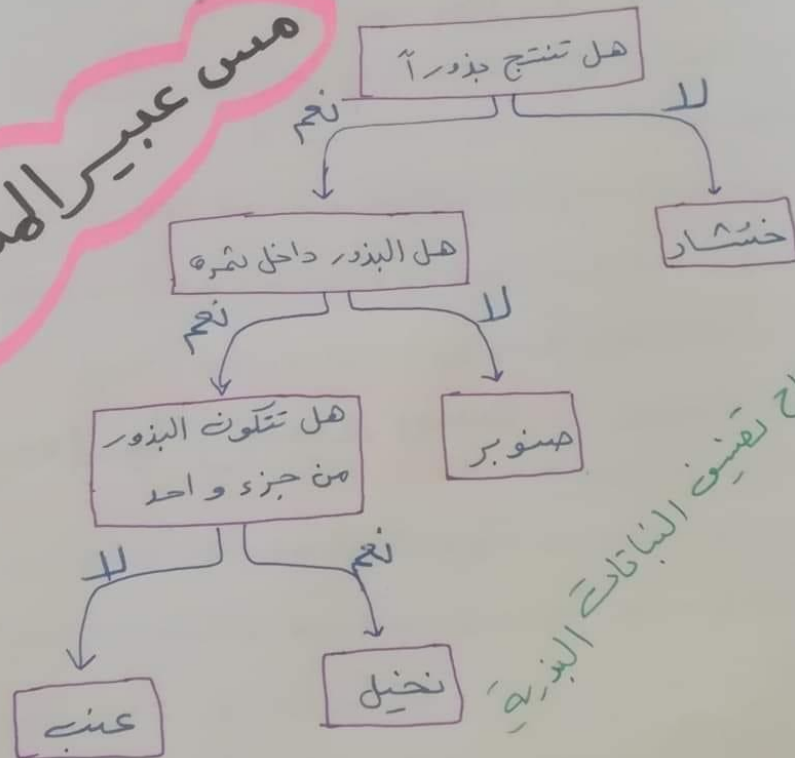 مس عبير
هل تنتج بذوراً
نعم
لا
خنشار
هل البذور داخل ثمرة
نعم
لا
صنوبر
هل تتكون البذور
من جزء واحد
لا
نعم
عنب
نخيل
تصنيف النباتات البذرية